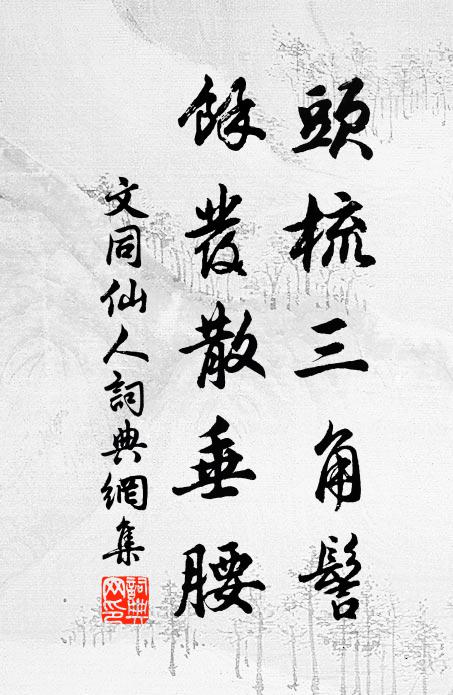 頭梳三角髻
餘發散垂腰
文同仙人詞典網集
詞典